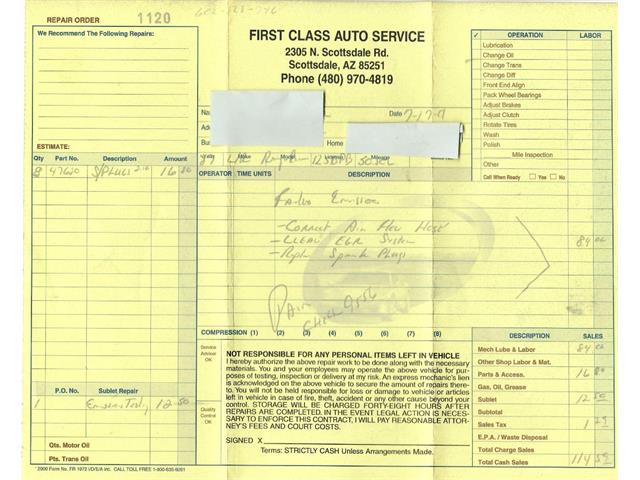 REPAIR ORDER 1120
We Recommend The Following Repairs:
ESTIMATE:
FIRST CLASS AUTO SERVICE
2305 N. Scottsdale Rd.
Scottsdale, AZ 85251
Phone (480) 970-4819
Date
Home
Make Model License Mileage
✓ OPERATION LABOR
Lubrication
Change Oil
Change Trans
Change Diff
Front End Align
Pack Wheel Bearings
Adjust Brakes
Adjust Clutch
Rotate Tires
Wash
Polish
Mile Inspection
Other
Call When Ready Yes No
Qty Part No. Description Amount
8 S/Plugs 16
OPERATOR TIME UNITS DESCRIPTION
Failed Emission
- Correct Air Flow Hose
- Clean EGR System
- Replace Spark Plugs
84
Paid
Check 9556
COMPRESSION (1) (2) (3) (4) (5) (6) (7) (8)
P.O. No. Sublet Repair
1 12.50
Qts. Motor Oil
Pts. Trans Oil
Service
Advisor
OK
Quality
Control
OK
NOT RESPONSIBLE FOR ANY PERSONAL ITEMS LEFT IN VEHICLE
I hereby authorize the above repair work to be done along with necessary
materials. You and your employees may operate the above vehicle for pur-
poses of testing, inspection or delivery at my risk. An express mechanic's lien
is acknowledged on the above vehicle to secure the amount of repairs there-
to. You will not be held responsible for loss or damage to vehicle or articles
left in vehicle in case of fire, theft, accident or any other cause beyond your
control. STORAGE WILL BE CHARGED FORTY-EIGHT HOURS AFTER
REPAIRS ARE COMPLETED. IN THE EVENT LEGAL ACTION IS NECES-
SARY TO ENFORCE THIS CONTRACT, I WILL PAY REASONABLE ATTOR-
NEY'S FEES AND COURT COSTS.
SIGNED X
Terms: STRICTLY CASH Unless Arrangements Made.
DESCRIPTION SALES
Mech Lube & Labor 84
Other Shop Labor & Mat.
Parts & Access. 16
Gas, Oil, Grease
Sublet 12 50
Subtotal
Sales Tax
E.P.A. / Waste Disposal
Total Charge Sales
Total Cash Sales